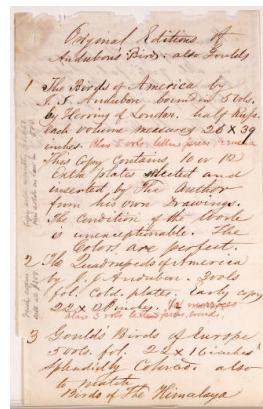 Original Editions of
Audubon's Birds. also Goulds
1 The Birds of America by
J. J. Audubon bound in 5 vols.
by Herring of London. half Russ.
Each volume measures 26 X 39
inches. Also 5 vols. letter press
This Copy Contains 10 or 12
Extra plates selected and
inserted by The Author
from his own Drawings.
The Condition of the Work
is unexceptionable. The
Colors are perfect.
2 The Quadrupeds of America
by J. J. Audubon. 3 vols
fol. Cold. plates. Early copy
22 X 28 inches. morocco
also 3 vols letter press. bound.
3 Gould's Birds of Europe
5 vols. fol. 22 X 16 inches
splendidly Colored. also
to match
Birds of The Himalaya